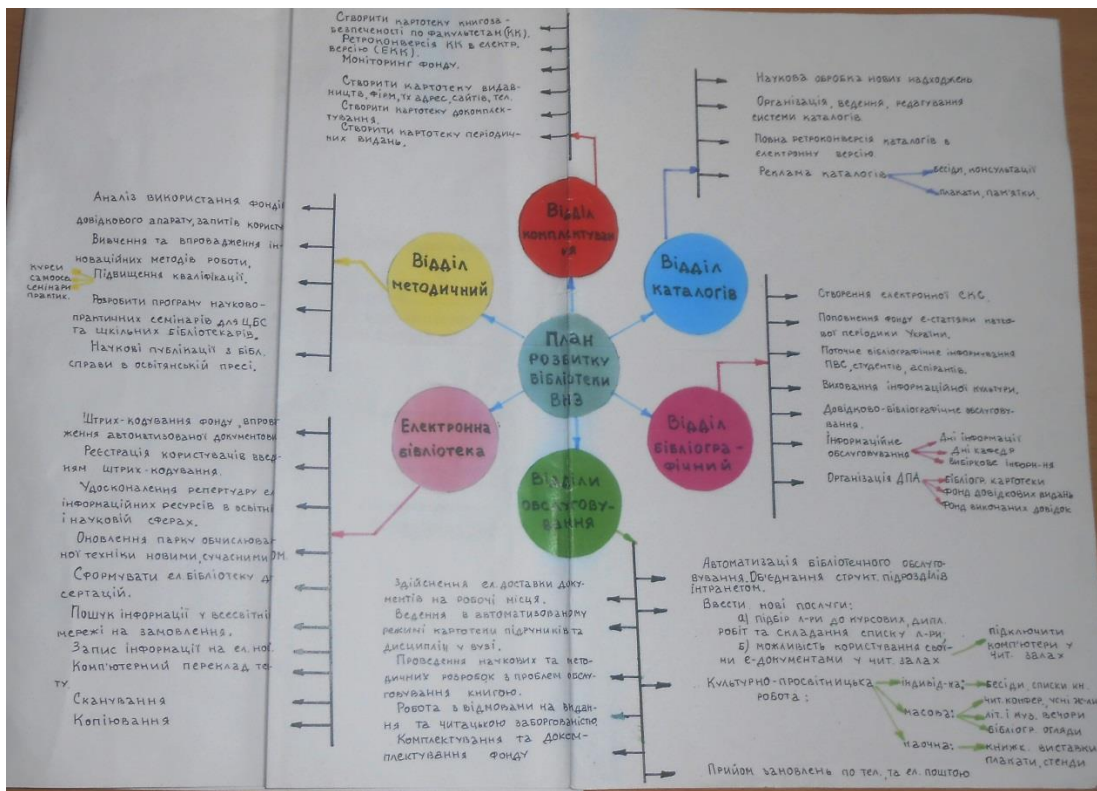 Створити картотеку книгоза-
безпеченості по факультетам (КК).
Ретроконверсія КК в електр.
версію (ЕКК).
Моніторинг фонду.
Створити картотеку видав-
ництв, фірм, їх адрес, сайтів, тел.
Створити картотеку докомплек-
тування.
Створити картотеку періодич-
них видань.
Наукова обробка нових надходжень
Організація, ведення, редагування
системи каталогів.
Повна ретроконверсія каталогів в
електронну версію.
Реклама каталогів
бесіди, консультації
плакати, пам'ятки.
Відділ
комплектуван
ня
Відділ
каталогів
Відділ
методичний
План
розвитку
бібліотеки
ВНЗ
Електронна
бібліотека
Відділ
бібліогра-
фічний
Відділи
обслугову-
вання
Аналіз використання фондів
довідкового апарату, запитів корист
Вивчення та впровадження ін-
новаційних методів роботи.
Підвищення кваліфікації.
курси
самоосв.
семінари
практик.
Розробити програму науково-
практичних семінарів для ЦБС
та шкільних бібліотекарів.
Наукові публікації з бібл.
справи в освітянській пресі.
Створення електронної СКС.
Поповнення фонду е-статтями
періодики України.
Поточне бібліографічне інформування
ПВС, студентів, аспірантів.
Виховання інформаційної культури.
Довідково-бібліографічне обслугову-
вання.
Інформаційне
обслуговування
Дні інформації
Дні кафедр
Вибіркове інформ-ня
Організація ДПА
Бібліогр. картотеки
Фонд довідкових видань
Фонд виконаних довідок
Штрих-кодування фонду, впров
ження автоматизованої документови
Реєстрація користувачів введ
ням штрих-кодування.
Удосконалення репертуару ел
інформаційних ресурсів в освітні
і науковій сферах.
Оновлення парку обчислюва
ної техніки новими, сучасними
Сформувати ел. бібліотеку д
сертацій.
Пошук інформації у всесвітні
мережі на замовлення.
Запис інформації на ел. нос
Комп'ютерний переклад те
ту.
Сканування
Копіювання
Здійснення ел. доставки доку-
ментів на робочі місця.
Ведення в автоматизованому
режимі картотеки підручників та
дисциплін у вузі.
Проведення наукових та мето-
дичних розробок з проблем обслу-
говування книгою.
Робота з відмовами на видан-
ня та читацькою заборгованістю
Комплектування та доком-
плектування фонду
Автоматизація бібліотечного обслуго-
вування. Об'єднання структ. підрозділів
інтранетом.
Ввести нові послуги:
а) підбір л-ри до курсових, дипл.
робіт та складання списку л-ри,
б) можливість користування свої-
ми е-документами у чит. залах
підключити
комп'ютери у
чит. залах
Культурно-просвітницька
робота:
індивід-на:
бесіди, списки кн.
масова:
чит. конфер., усні ж-ли
літ. і муз. вечори
бібліогр. огляди
наочна:
книжк. виставки
плакати, стенди
Прийом замовлень по тел. та ел. поштою